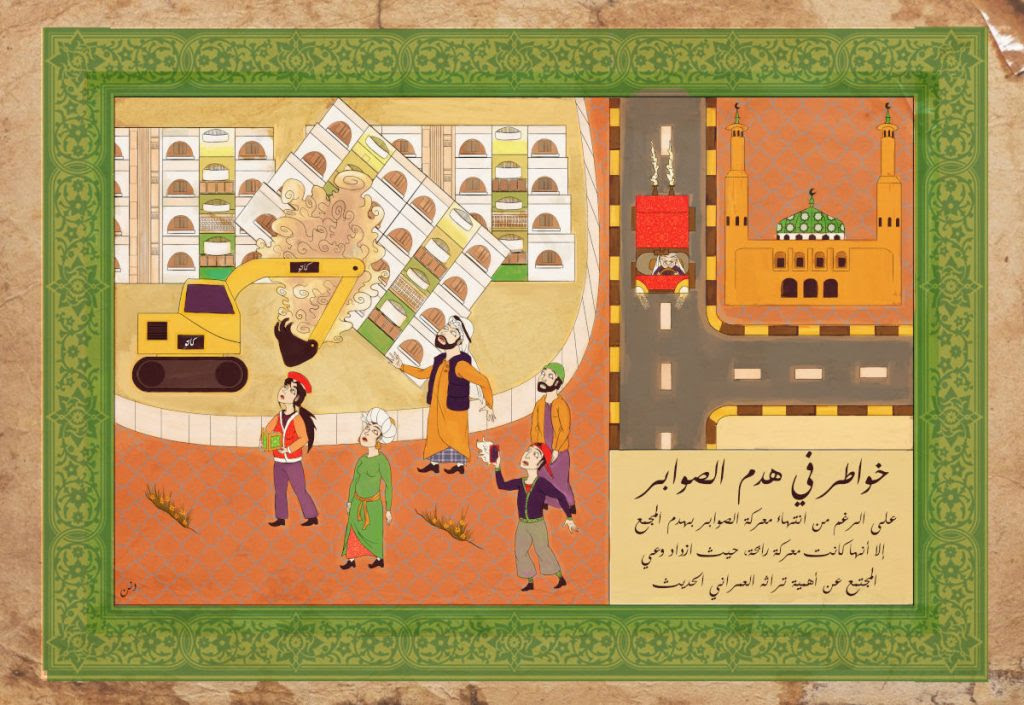 كاتو
كاتو
خواطر في هدم الصوابر
على الرغم من انتهاء معركة الصوابر بهدم المجمع
إلا أنها كانت معركة رابحة، حيث ازداد وعي
المجتمع عن أهمية تراثه العمراني الحديث